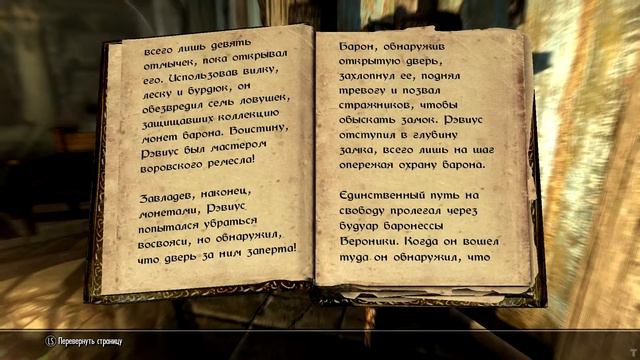 всего лишь девять
отмычек, пока открывал
его. Использовав вилку,
леску и бурдюк, он
обезвредил семь ловушек,
защищавших коллекцию
монет барона. Воистину,
Рэвиус был мастером
воровского ремесла!
Завладев, наконец,
монетами, Рэвиус
попытался убраться
восвояси, но обнаружил,
что дверь за ним заперта!
Барон, обнаружив
открытую дверь,
захлопнул ее, поднял
тревогу и позвал
стражников, чтобы
обыскать замок. Рэвиус
отступил в глубину
замка, всего лишь на шаг
опережая охрану барона.
Единственный путь на
свободу пролегал через
будуар баронессы
Вероники. Когда он вошел
туда он обнаружил, что
LS Перевернуть страницу